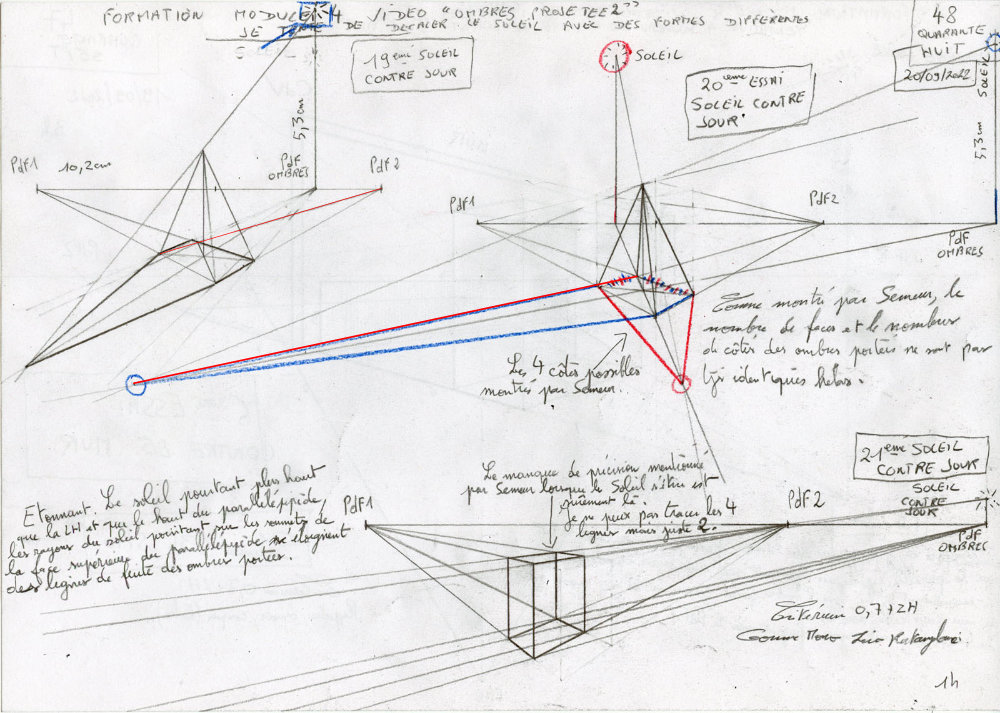 FORMATION MODULE 4 VIDEO "OMBRES PROJETEE 2"
JE DE DECALER LE SOLEIL AVEC DES FORMES DIFFÉRENTES
48
QUARANTE
HUIT
20/09/2022
19eme SOLEIL
CONTRE JOUR
SOLEIL
20eme ESSAI
SOLEIL CONTRE
JOUR
SOLEIL
5,3cm
5,3cm
PdF1
10,2cm
PdF
OMBRES
PdF2
PdF1
PdF2
PdF
OMBRES
Comme montré par Semeur, le
nombre de faces et le nombre
de côtés des ombres portées ne sont pas
identiques hélas.
Les 4 côtés possibles
montrés par Semeur.
21eme SOLEIL
CONTRE JOUR
SOLEIL
CONTRE
JOUR
Le manque de précision mentionné
par Semeur lorsque le Soleil s'étire est
là.
Je ne peux pas tracer les 4
lignes mais juste 2.
Etonnant. Le soleil pourtant plus haut
que la LH et que le haut du parallélépipède,
les rayons du soleil pointant sur les sommets de
la face supérieure du parallélépipède s'éloignent
des lignes de fuite des ombres portées.
PdF1
PdF2
PdF
OMBRES
Critérium 0,7+2H
Gomme
1h